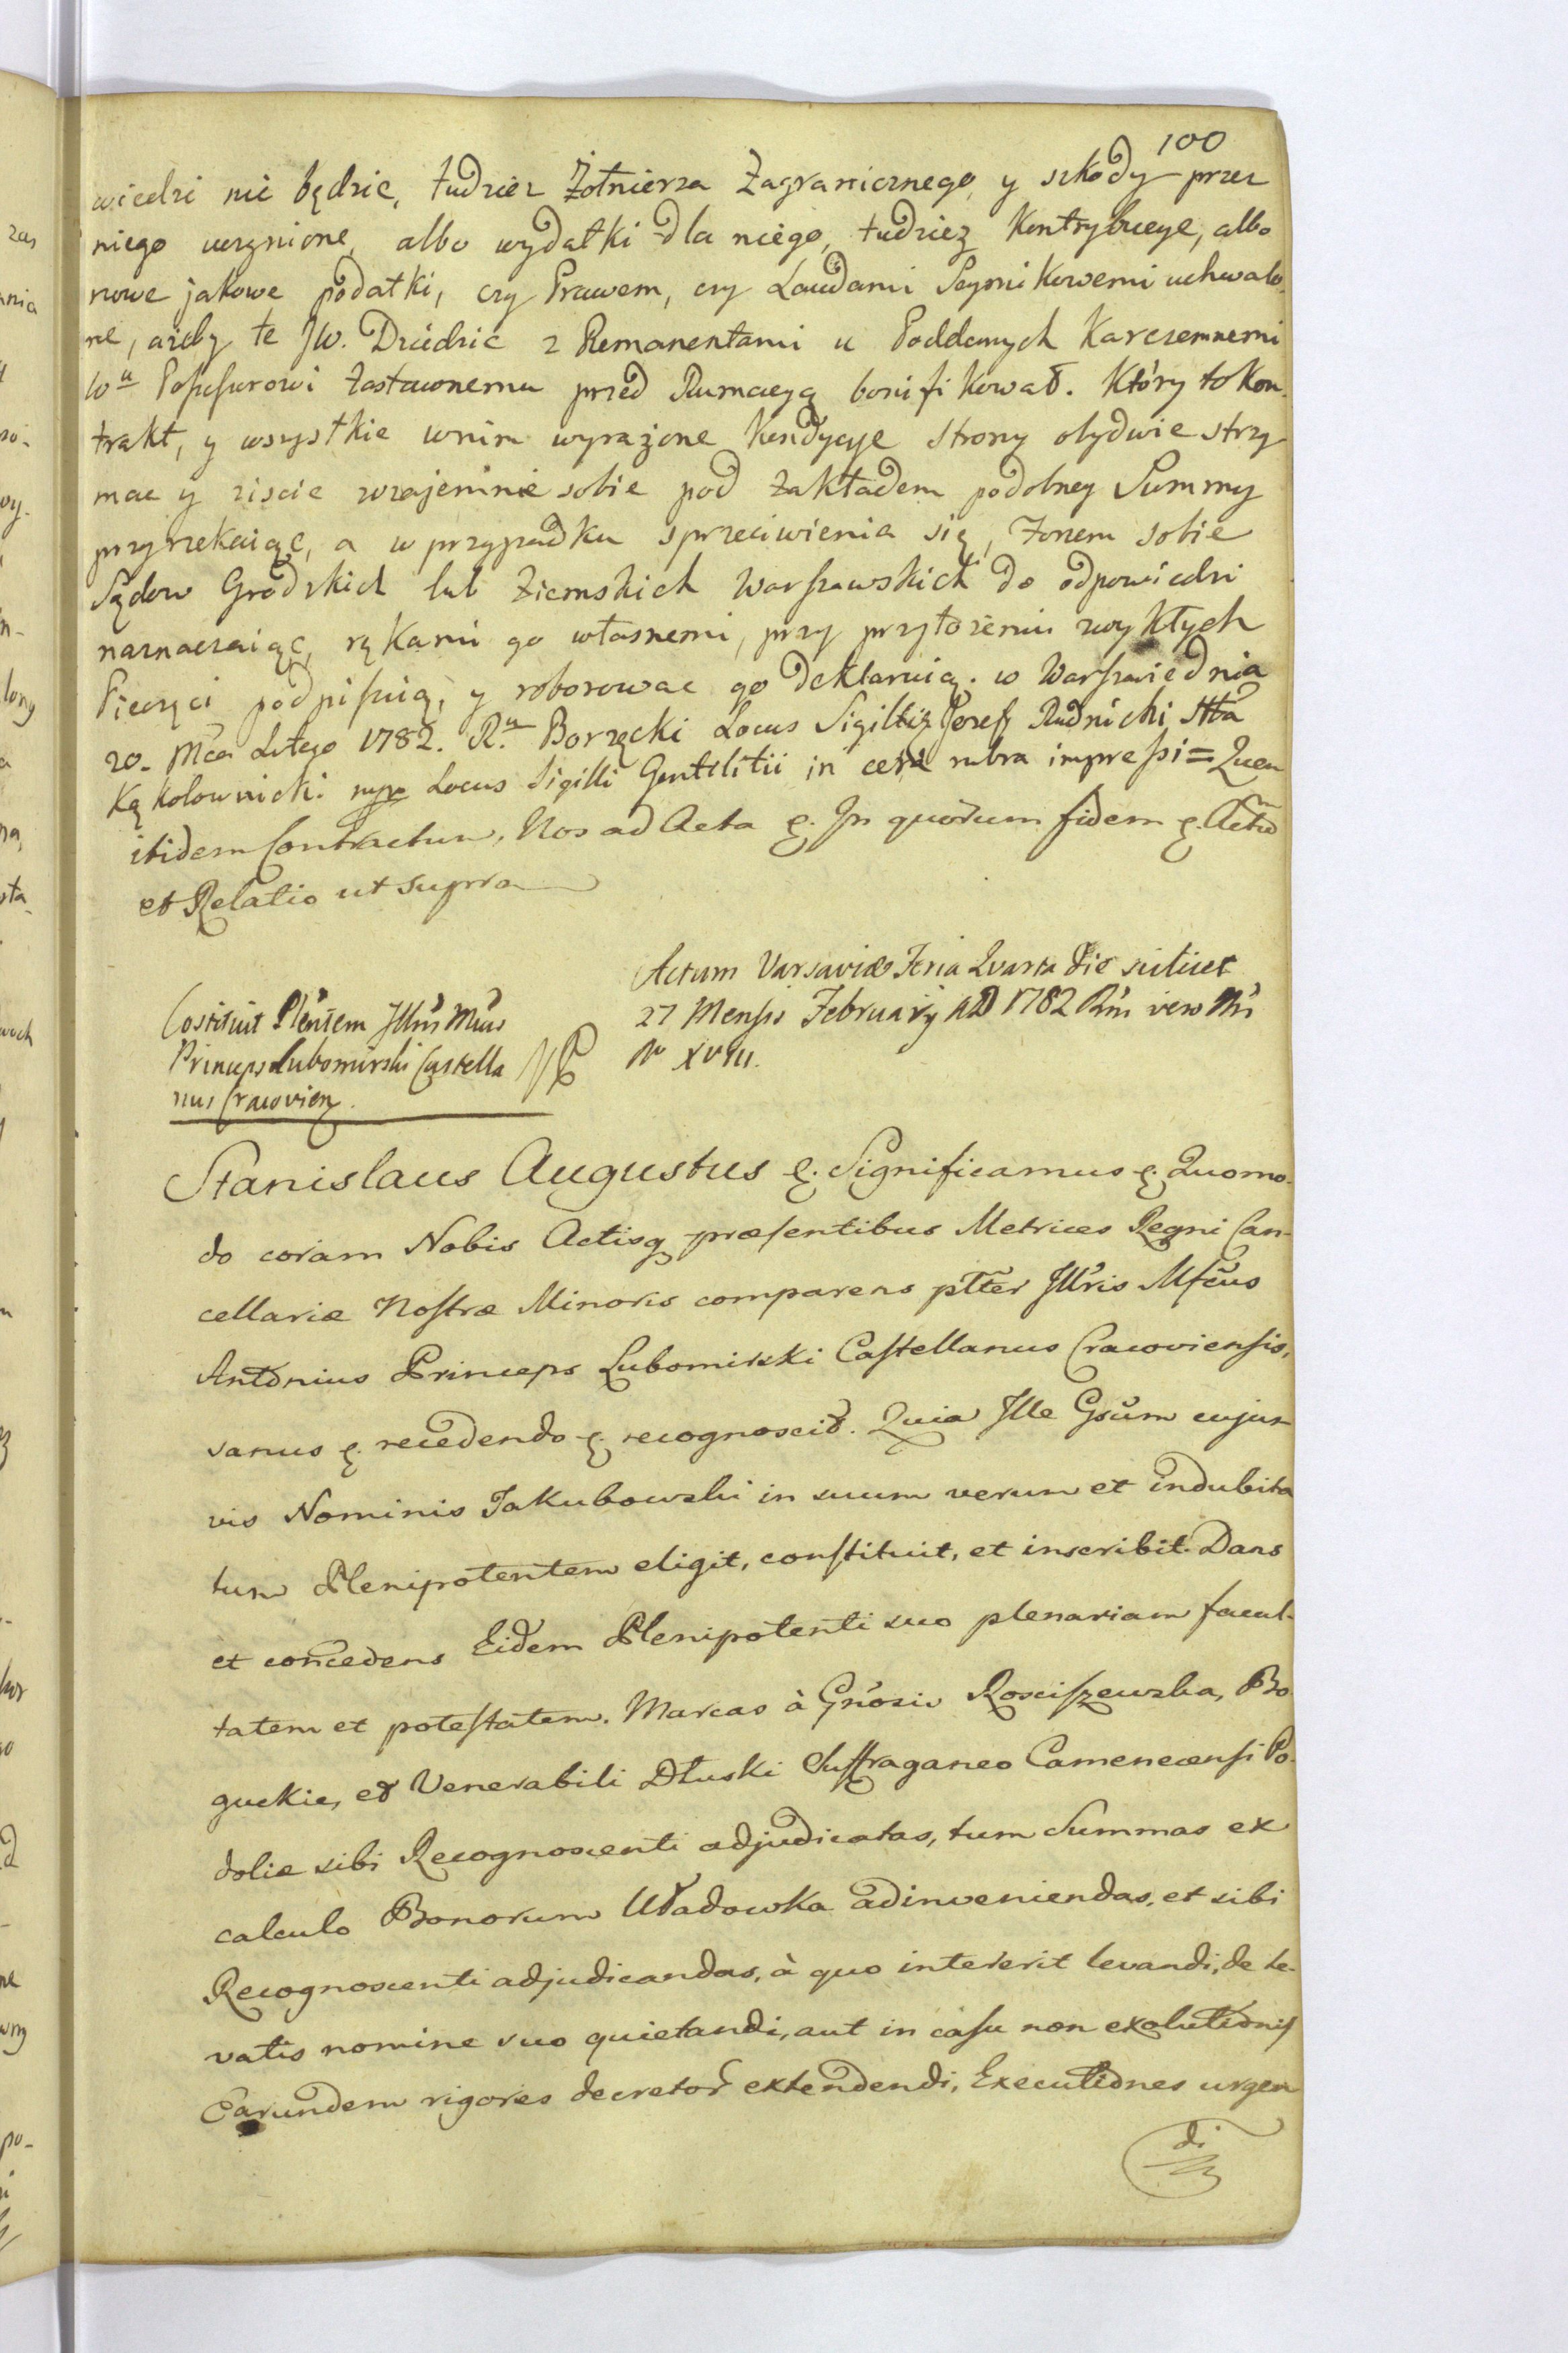 100
wiedzi nie będzie, tudziez Żołnierza Zagranicznego y szkody przez
niego uczynione, albo wydatki dla niego, tudziez Kontrybucye, albo
nowe jakowe podatki, czy Prawem, czy Laudami Seymikowemi uchwalo-
ne, ażeby te JW. Dziedzic z Remanentami u Poddanych Karczemnemi
Wu Possessorowi Zastawnemu przed Rumacyą bonifikował. Który to Kon-
trakt, y wszystkie wnim wyrażone Kondycye Strony obydwie strzy
mac y ziscic wzajemnie sobie pod Zakładem podobney Summy
przyrzekaiąc, a w przypadku sprzeciwienia się, Forum sobie
Sądow Grodzkich lub Ziemskich Warszawskich do odpowiedzi
naznaczaiąc, rękami go własnemi, przy przyłożeniu zwykłych
Pieczęci podpisuią, y roborowac go deklaruią. w Warszawie dnia
20. Mca Lutego 1782. Ru Borzęcki Locus Sigilli Jozef Rudnicki
Locus Sigilli Gentilitii in cera rubra impressi = Quem
itidem Contractum, Nos ad Acta &. In quorum fidem &. Actu
et Relatio ut supra
Actum Varsaviæ Feria Quarta die scilicet
27 Mensis February AD 1782 Rni vero Nri
No XVIII.
Costituit Plentem Jllris Mfcus
Princeps Lubomirski Castella
nus Cracovien.
Stanislaus Augustus &. Significamus &. Quomo-
do coram Nobis Actisq præsentibus Metrices Regni Can-
cellariæ Nostræ Minoris comparens pltter Jllris Mfcus
Antonius Princeps Lubomirski Castellanus Cracoviensis,
sanus &. recedendo &. recognoscit. Quia Jlle Gsum cujus
vis Nominis Jakubowski in suum verum et indubita
tum Plenipotentem eligit, constituit, et inscribit. Dans
et concedens Eidem Plenipotenti suo plenariam facul-
tatem et potestatem. Marcas à Gnosis Rosciszewska, Bo
guckie, et Venerabili Dłuski Suffraganeo Camenecensi Po-
doliæ sibi Recognoscenti adjudicatas, tum Summas ex
calculo Bonorum Uładowka adinveniendas, et sibi
Recognoscenti adjudicandas, à quo intererit levandi, de le-
vatis nomine suo quietandi, aut in casu non exolutionis
Earundem rigores decretor extendendi, Executiones urgen
di